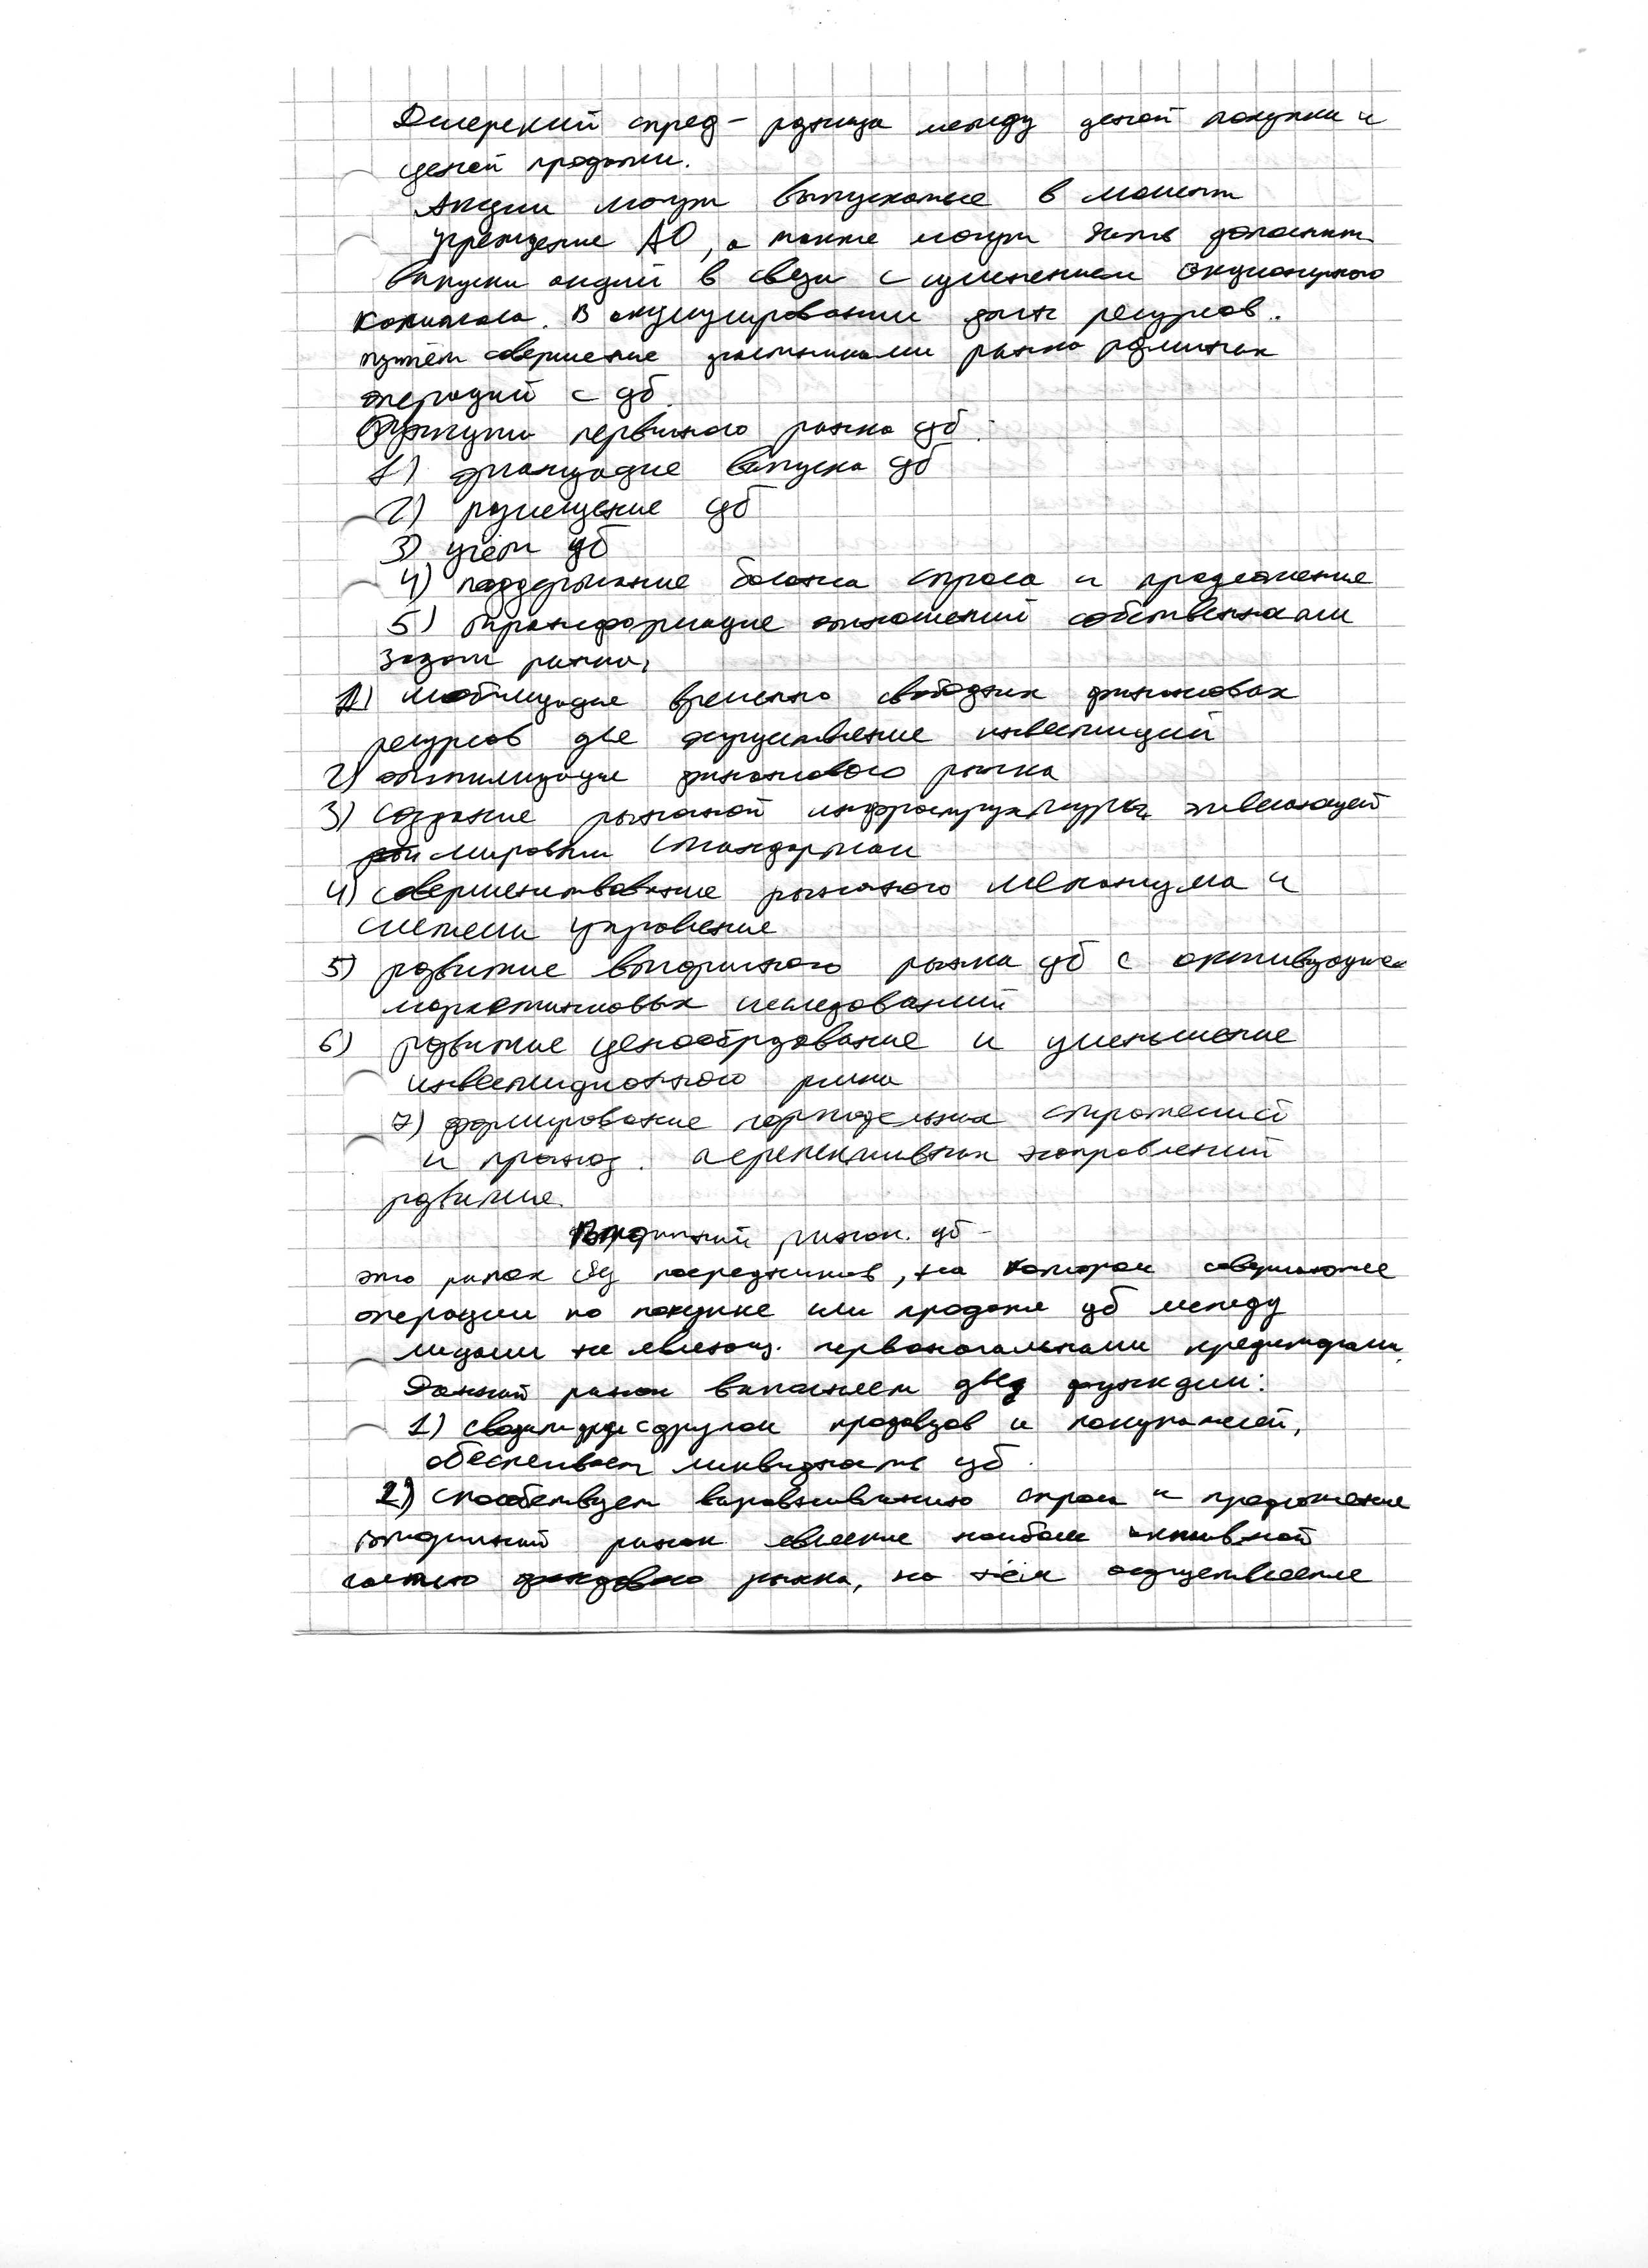 Дилерский спред – разница между ценой покупки и
ценой продажи.
Акции могут выпускаться в момент
учреждение АО, а также могут быть дополнит.
выпуски акций в связи с изменением акционерного
капитала. В аккумулировании ден ресурсов.
путём совершение участниками рынка различных
операций с цб.
Функции первичного рынка цб:
1) организация выпуска цб
2) размещение цб
3) учёт цб
4) поддержание баланса спроса и предложение
5) трансформация отношений собственности
Задачи рынка,
1) мобилизация временно свободных финансовых
ресурсов для осуществление инвестиций
2) активизация финансового рынка
3) создание рыночной инфраструктуры, отвечающей
мировым стандартам
4) совершенствование рыночного механизма и
системы управление
5) развитие вторичного рынка цб с активизацией
маркетинговых исследований
6) развитие ценообразование и уменьшение
инвестиционного риска
7) формирование портфельных стратегий
и прогноз. перспективных направлений
развитие.
Вторичный рынок. цб –
это рынок без посредников, на котором совершаются
операции по покупке или продаже цб между
лицами не являющ. первоначальными кредиторами.
Данный рынок выполняет две функции:
1) сводит друг с другом продавцов и покупателей,
обеспечивает ликвидность цб.
2) способствует выравниванию спроса и предложение
вторичный рынок является наиболее активной
частью фондового рынка, на нём осуществляется